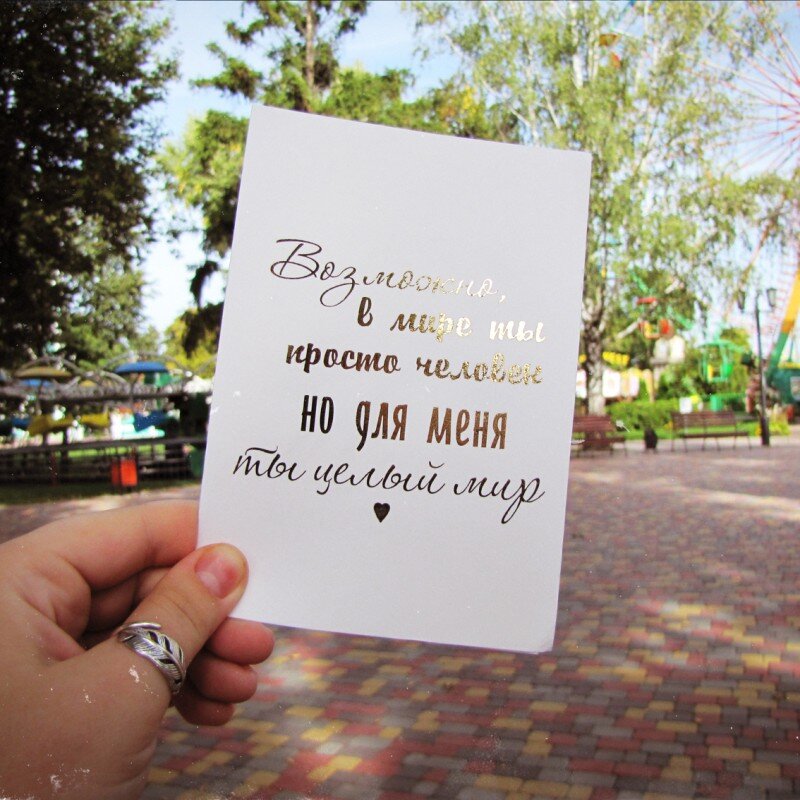 Возможно,
в мире ты
просто человек
но для меня
ты целый мир